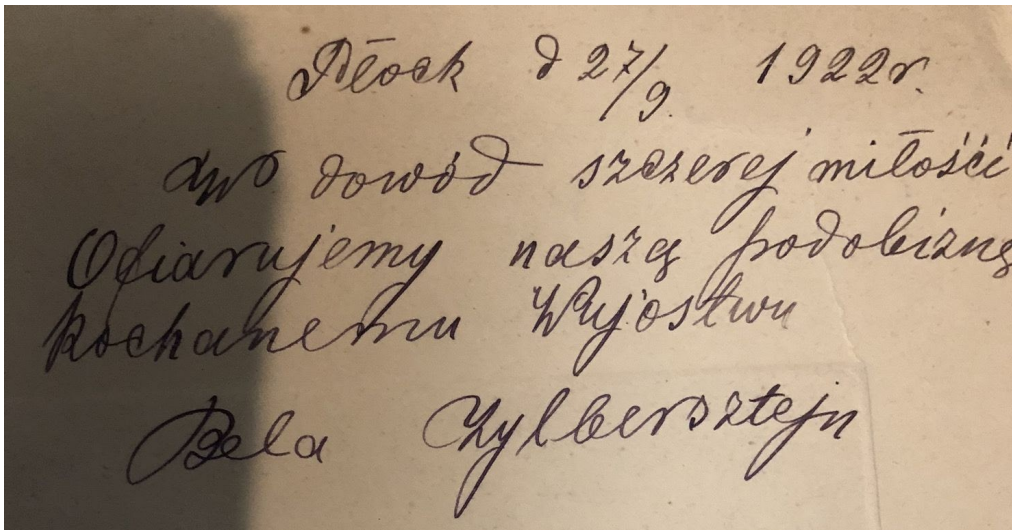 Płock d 27/9. 1922r.
dowód szczerej miłośći
Ofiarujemy naszą podobiznę
kochanemu Wujostwu
Bela Zylbersztejn